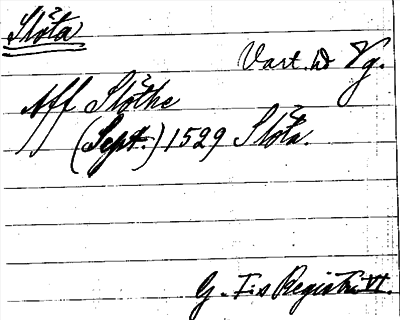 Slöta
Vart. hd Vg.
Aff Slöthe
(Sept.) 1529 Slöta.
G. I:s Registr. VI.